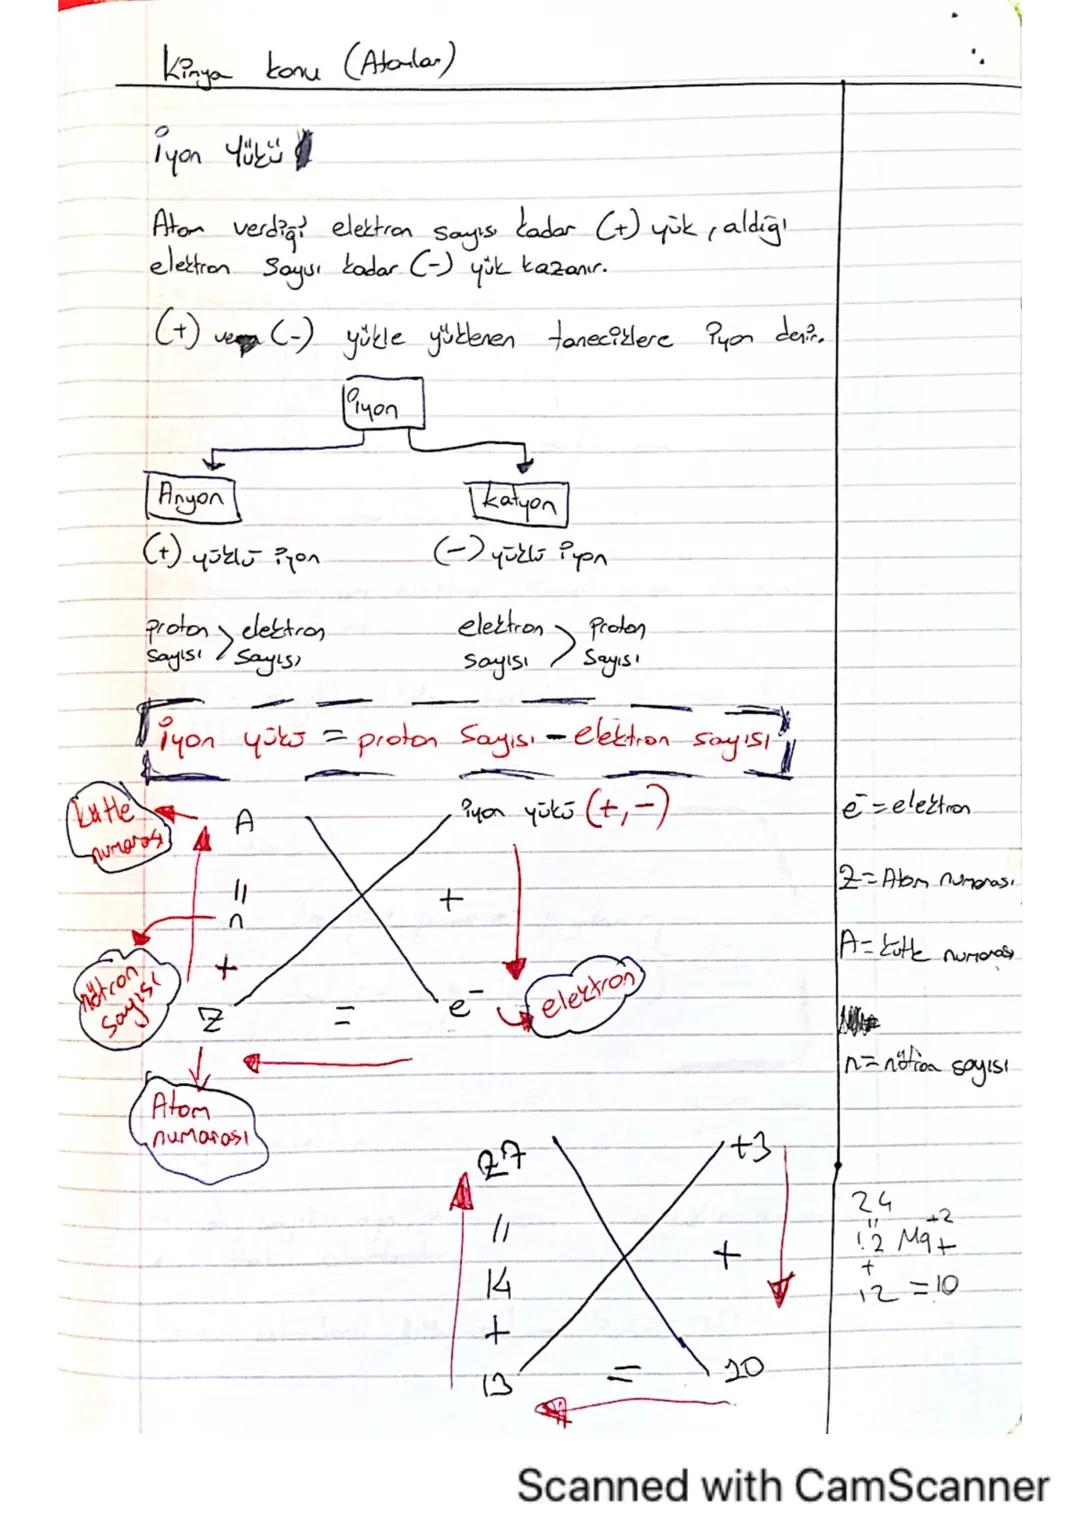 Kimya konu (Atomlar)
İyon Yükü
Atom verdiği elektron sayısı kadar (+) yük, aldığı
elektron sayısı kadar (-) yük kazanır.
(+) veya (-) yükle yüklenen taneciklere iyon denir.
iyon
Anyon
katyon
(+) yüklü iyon
(-) yüklü iyon
proton > elektron
sayısı sayısı
elektron > proton
sayısı sayısı
İyon yükü = proton sayısı - elektron sayısı
kütle
numarası
A
iyon yükü (+,-)
e⁻ = elektron
Z = Atom numarası
A = kütle numarası
n = nötron sayısı
=
n
+
nötron
sayısı
+
Z = e⁻
elektron
Atom
numarası
27 +3
=
14 +
+
13 = 10
24
=
12 Mg +2
+ +
12 = 10
Scanned with CamScanner